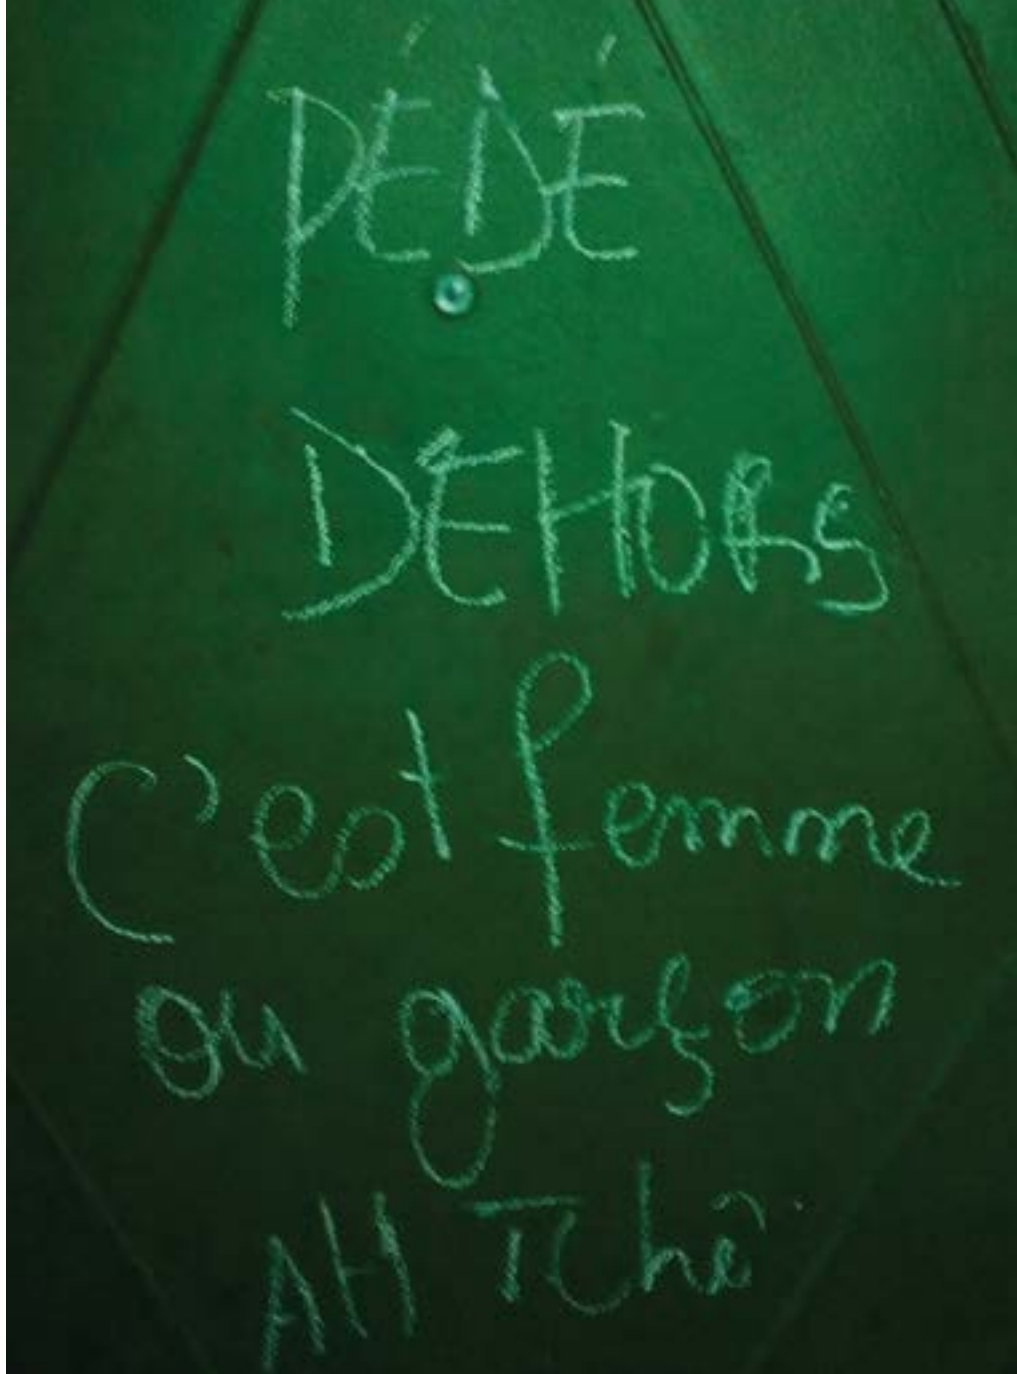 PÉDÉ
DÉHORS
C'est femme
ou garçon
AH Tchê